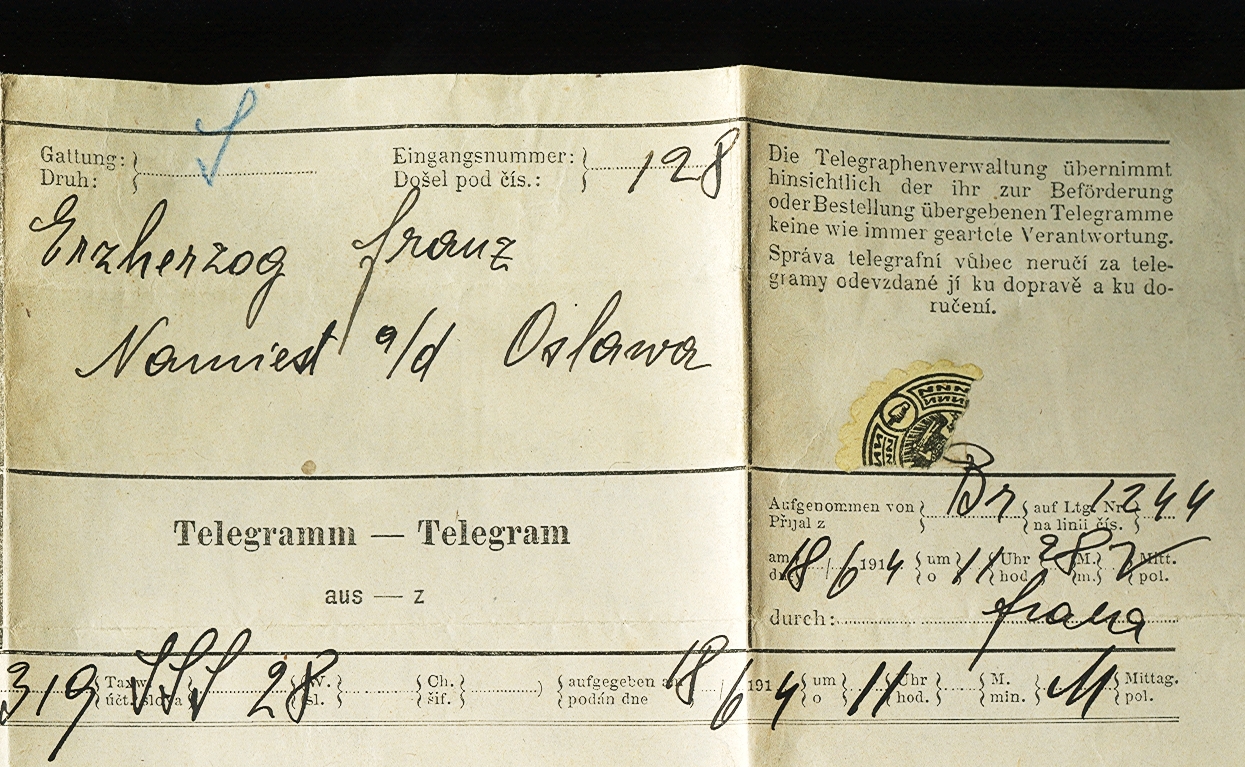 Gattung:
Druh:
Eingangsnummer:
Došel pod čís.:
128
Erzherzog Franz
Namiest a/d Oslawa
Die Telegraphenverwaltung übernimmt
hinsichtlich der ihr zur Beförderung
oder Bestellung übergebenen Telegramme
keine wie immer geartete Verantwortung.
Správa telegrafní vůbec neručí za tele-
gramy odevzdané jí ku dopravě a ku do-
ručení.
Telegramm — Telegram
aus — z
Aufgenommen von Br auf Ltg. Nr. 1244
Přijal z na linii čís.
am 18/6 1914 um 11 Uhr 28 M. Mitt.
dne o hod. m. pol.
durch:
319 Taxw. 28 W. Ch. aufgegeben am 18/6 1914 um 11 Uhr M. Mittag.
účt. slova sl. šif. podán dne o hod. min. pol.